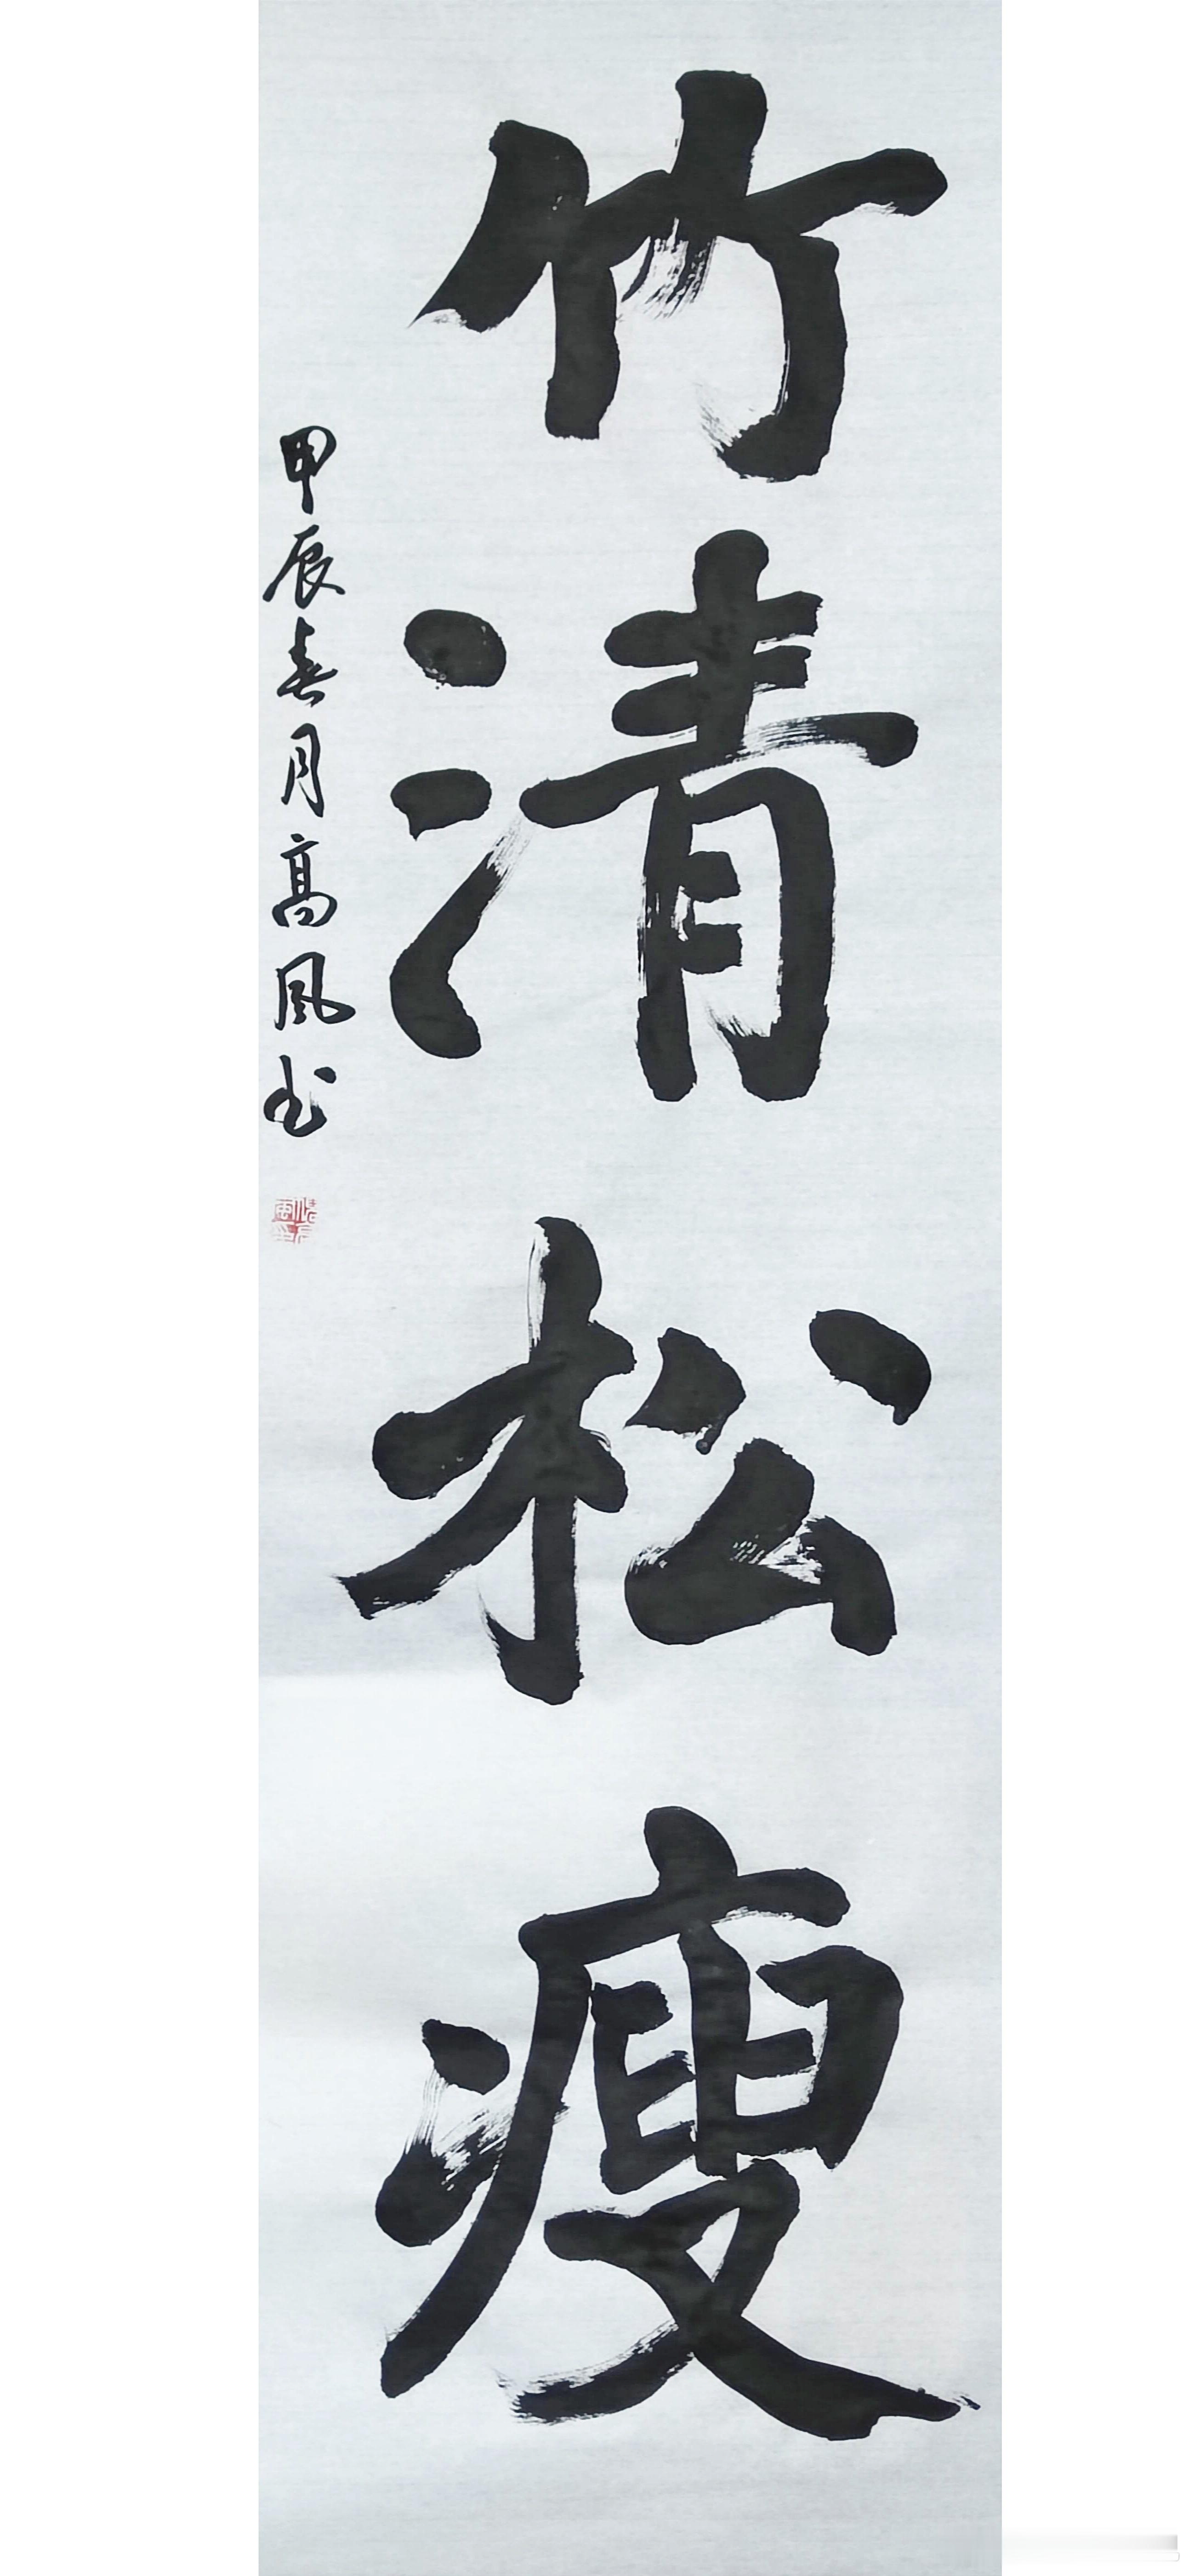 竹清松瘦
甲辰春月高风书